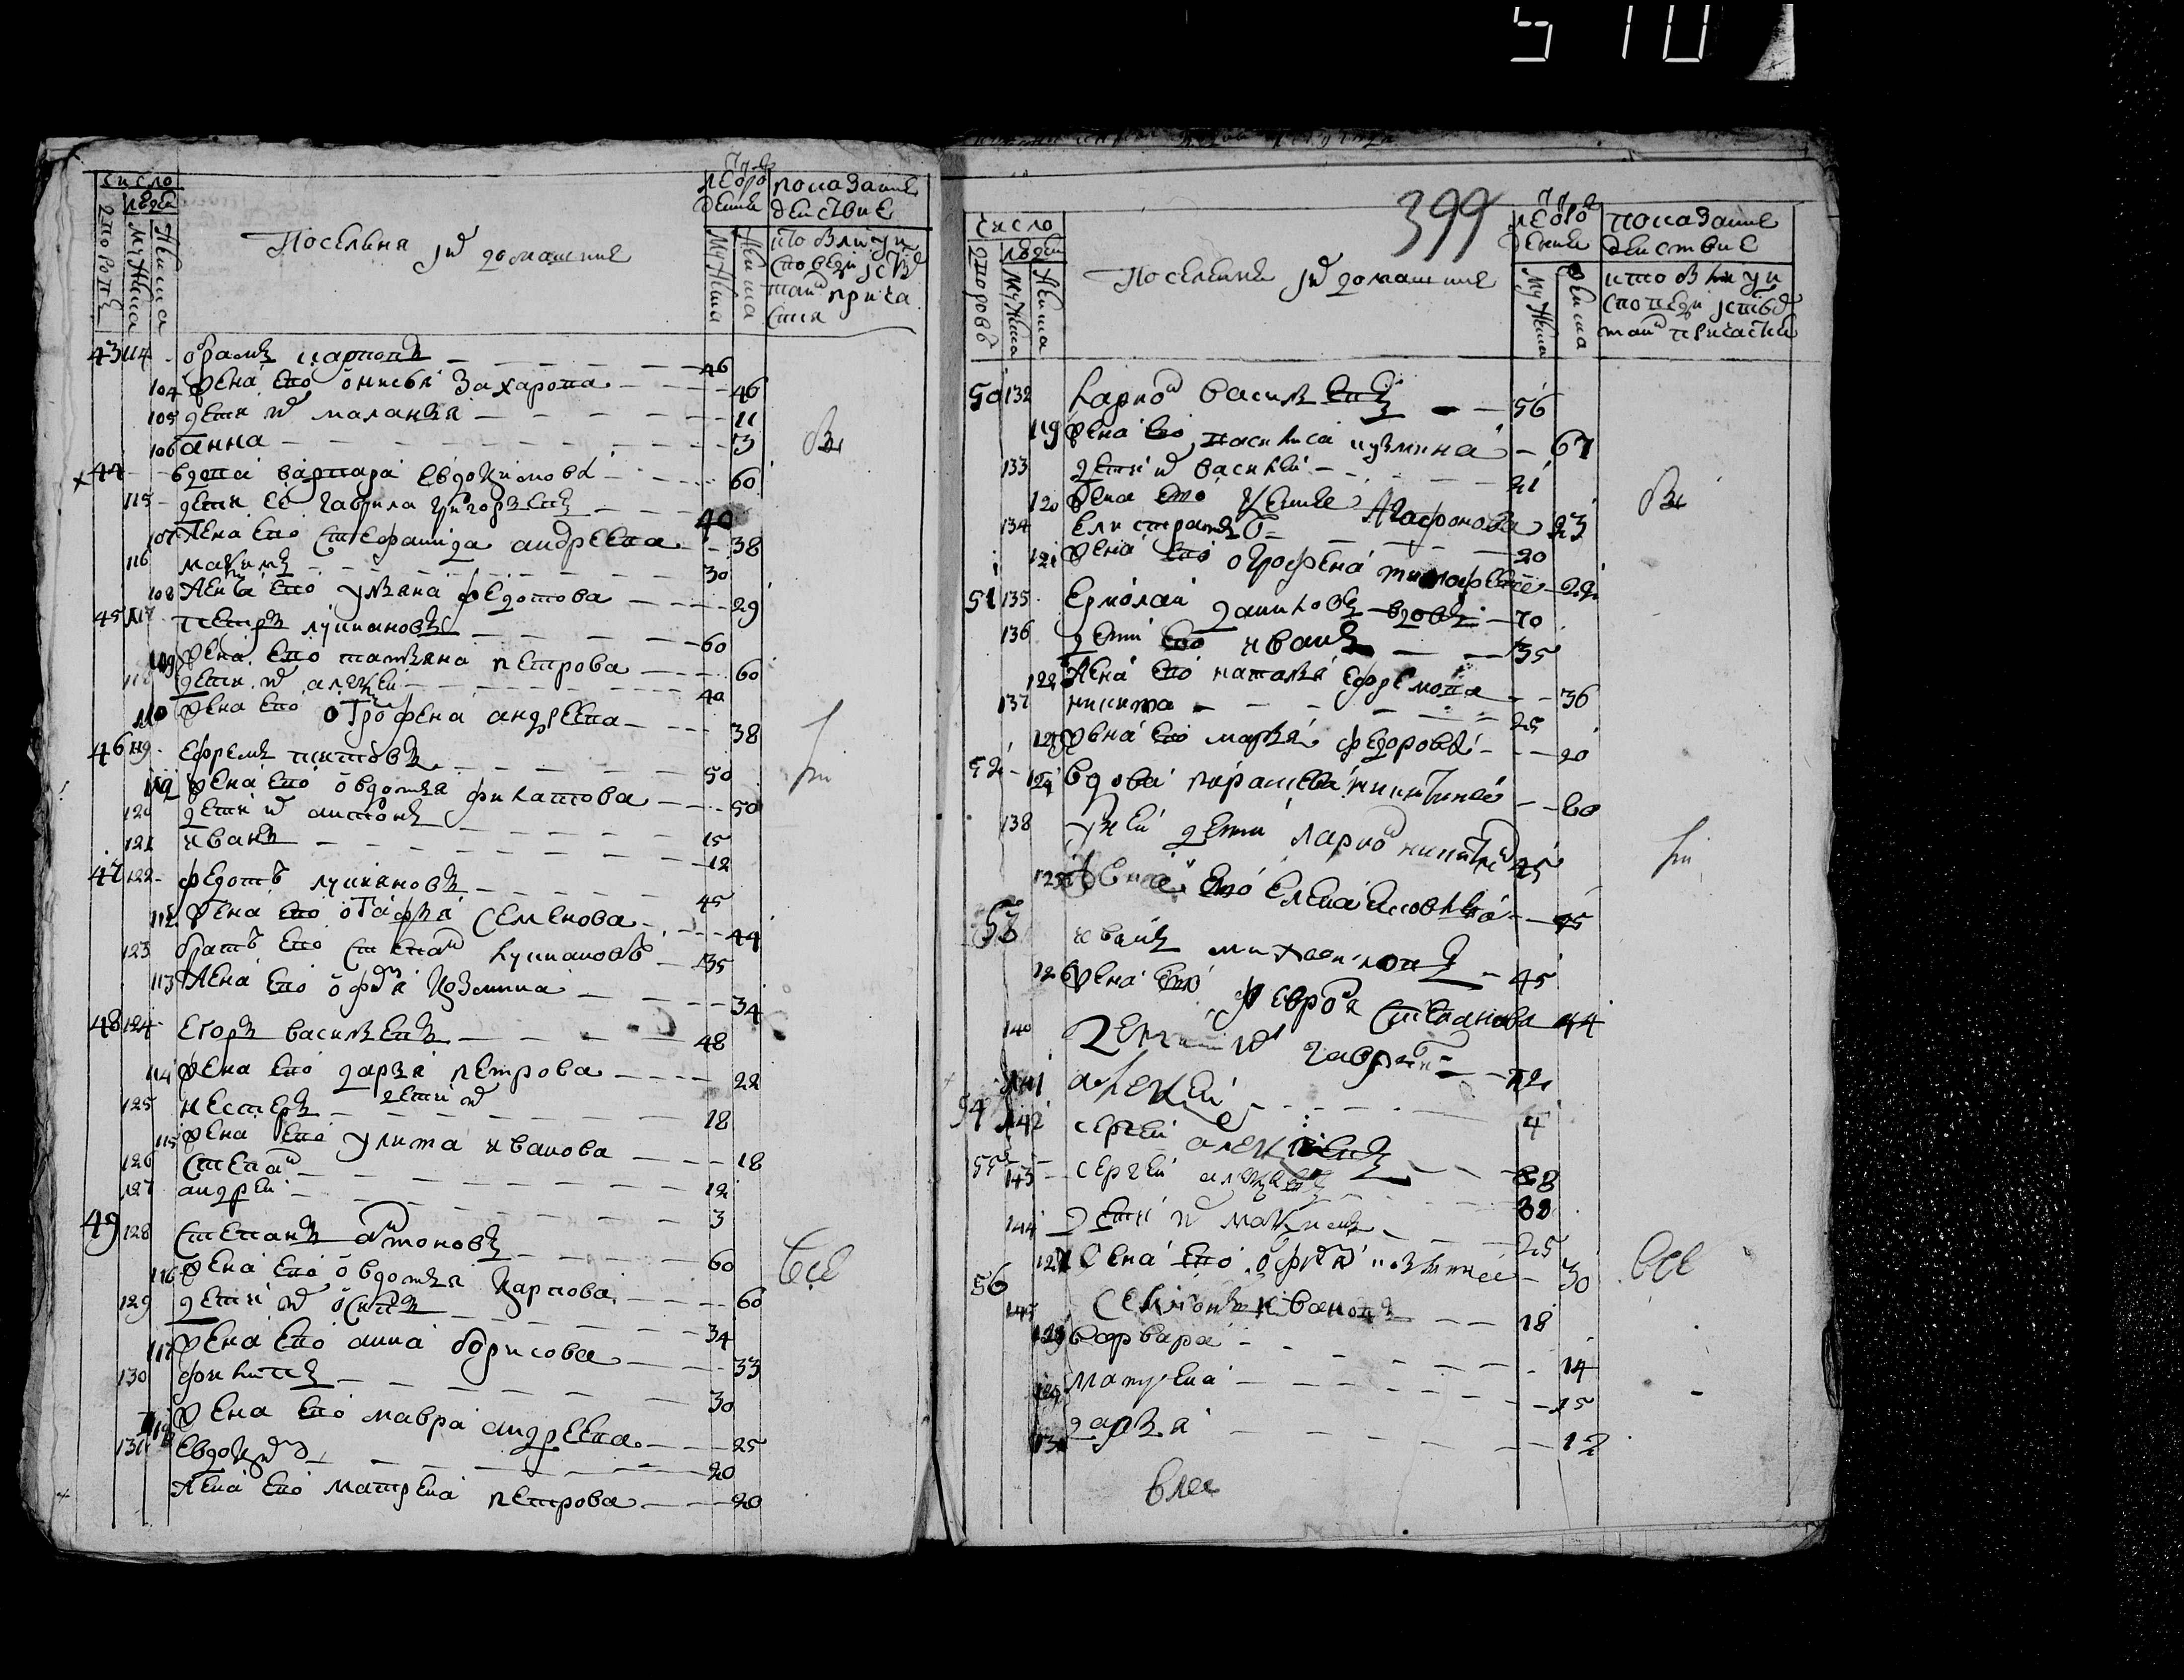 510
число
людей
дворовъ
мужеска
женска
Поселяня и домашние
лѣта
мужеска
женска
показание
действие
кто былъ у и
споведи и св
таго прича
стия
43 114 абрамъ карповъ 46
104 жена ево онисья захарова 46
105 дети их маланья 11
106 анна 3
44 вдова варвара евдокимова 60
115 дети ее гаврила григорьевъ 40
107 жена ево стефанида андреева 38
116 максимъ 30
108 жена ево ульяна федотова 29
45 117 петръ лукиановъ 60
109 жена ево татьяна петрова 60
118 дети их алексеи 40
110 жена ево огрофена андреева 38
46 119 ефремъ титовъ 50
жена ево овдотья филатова 50
120 дети их антонъ 15
121 иванъ 12
47 122 федотъ лукияновъ 45
112 жена ево огафья семенова 44
123 братъ ево степан лукиановъ 35
113 жена ево офимья козмина 34
48 124 егоръ васильевъ 48
114 жена ево дарья петрова 22
дети их
125 нестеръ 18
115 жена ево улита иванова 18
126 степан 12
127 андреи 3
49 128 степанъ антоновъ 60
116 жена ево овдотья карпова 60
129 дети их осипъ 34
117 жена ево анна борисова 33
130 филипъ 30
118 жена ево мавра андреева 25
131 евдоким 20
жена ево матрена петрова 20
все
399
число
людей
дворовъ
мужеска
женска
Поселяне и домашние
мужеска
женска
показание
действие
кто был у и
споведи и св
таго причастия
50 132 ларион васильевъ 56
119 жена ево васильса кузмина 67
133 дети их василеи 21
120 жена ево ксения агафонова 23
134 елистратъ 20
121 жена ево огрофена тимофеева 22
51 135 ермолаи даниловъ вдовъ 70
136 дети ево иванъ 35
122 жена ево наталья ефремова 36
137 никита 25
123 жена ево марья федорова 20
52 124 вдова парасковья никитина 60
138 у неи дети ларион никитин 25
125 жена ево елена 25
53 иванъ михаиловъ 45
126 жена ево феврония степанова 44
140 дети их гаврила 12
141 алексеи 4
54 142 сергеи алексеевъ 28
55 143 сергеи алексеевъ 38
144 дети их максимъ 25
127 жена ево офимья козмина 30
56 145 семионъ ивановъ 18
128 варвара 14
129 матрена 15
130 дарья 12
все